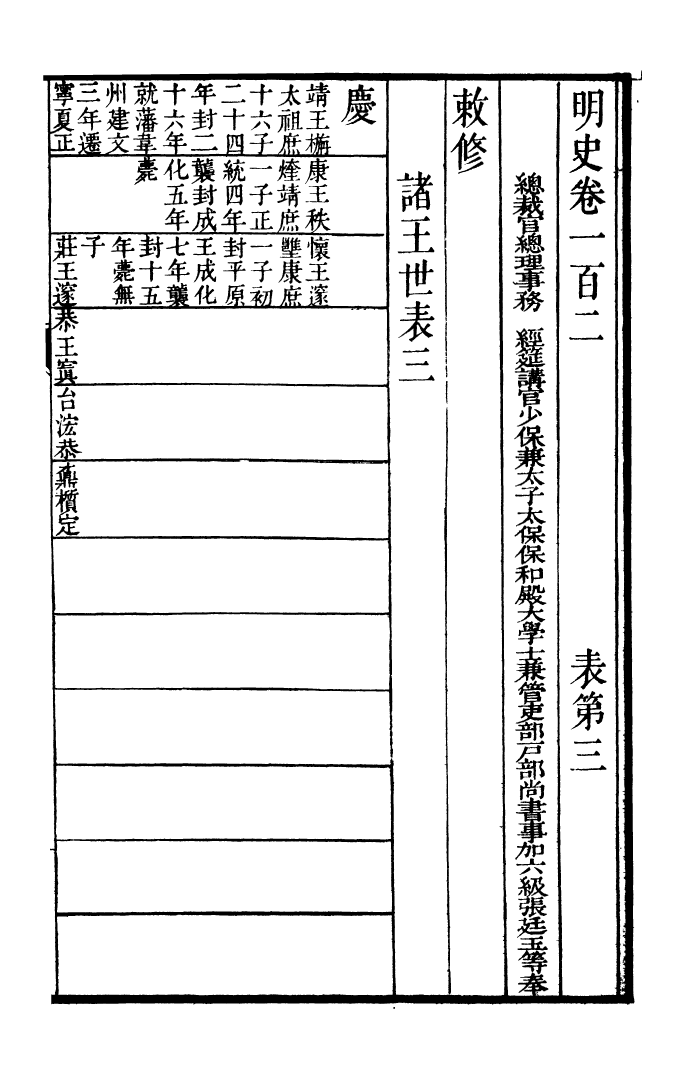 明史卷一百二　表第三
總裁官總理事務　經筵講官少保兼太子太保保和殿大學士兼管吏部戶部尚書事加六級張廷玉等奉
敕修
諸王世表三
慶
靖王㮵
太祖庶
十六子
二十四
年封二
十六年
就藩韋
州建文
三年遷
寧夏正
康王秩
煃靖庶
一子正
統四年
襲封成
化五年
薨
懷王邃
㙺康庶
一子初
封平原
王成化
七年襲
封十五
年薨無
子
莊王邃
恭王寘
台浤恭
鼒櫍定